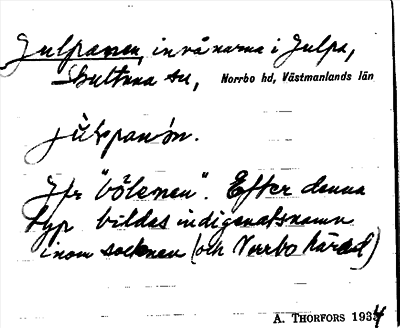 Julpanen, invånarna i Julpa,
Skultuna sn, Norrbo hd, Västmanlands län
Jfr "bölenen". Efter denna
typ bildas indigenatsnamn
inom socknen (och Norrbo härad)
A. THORFORS 1934